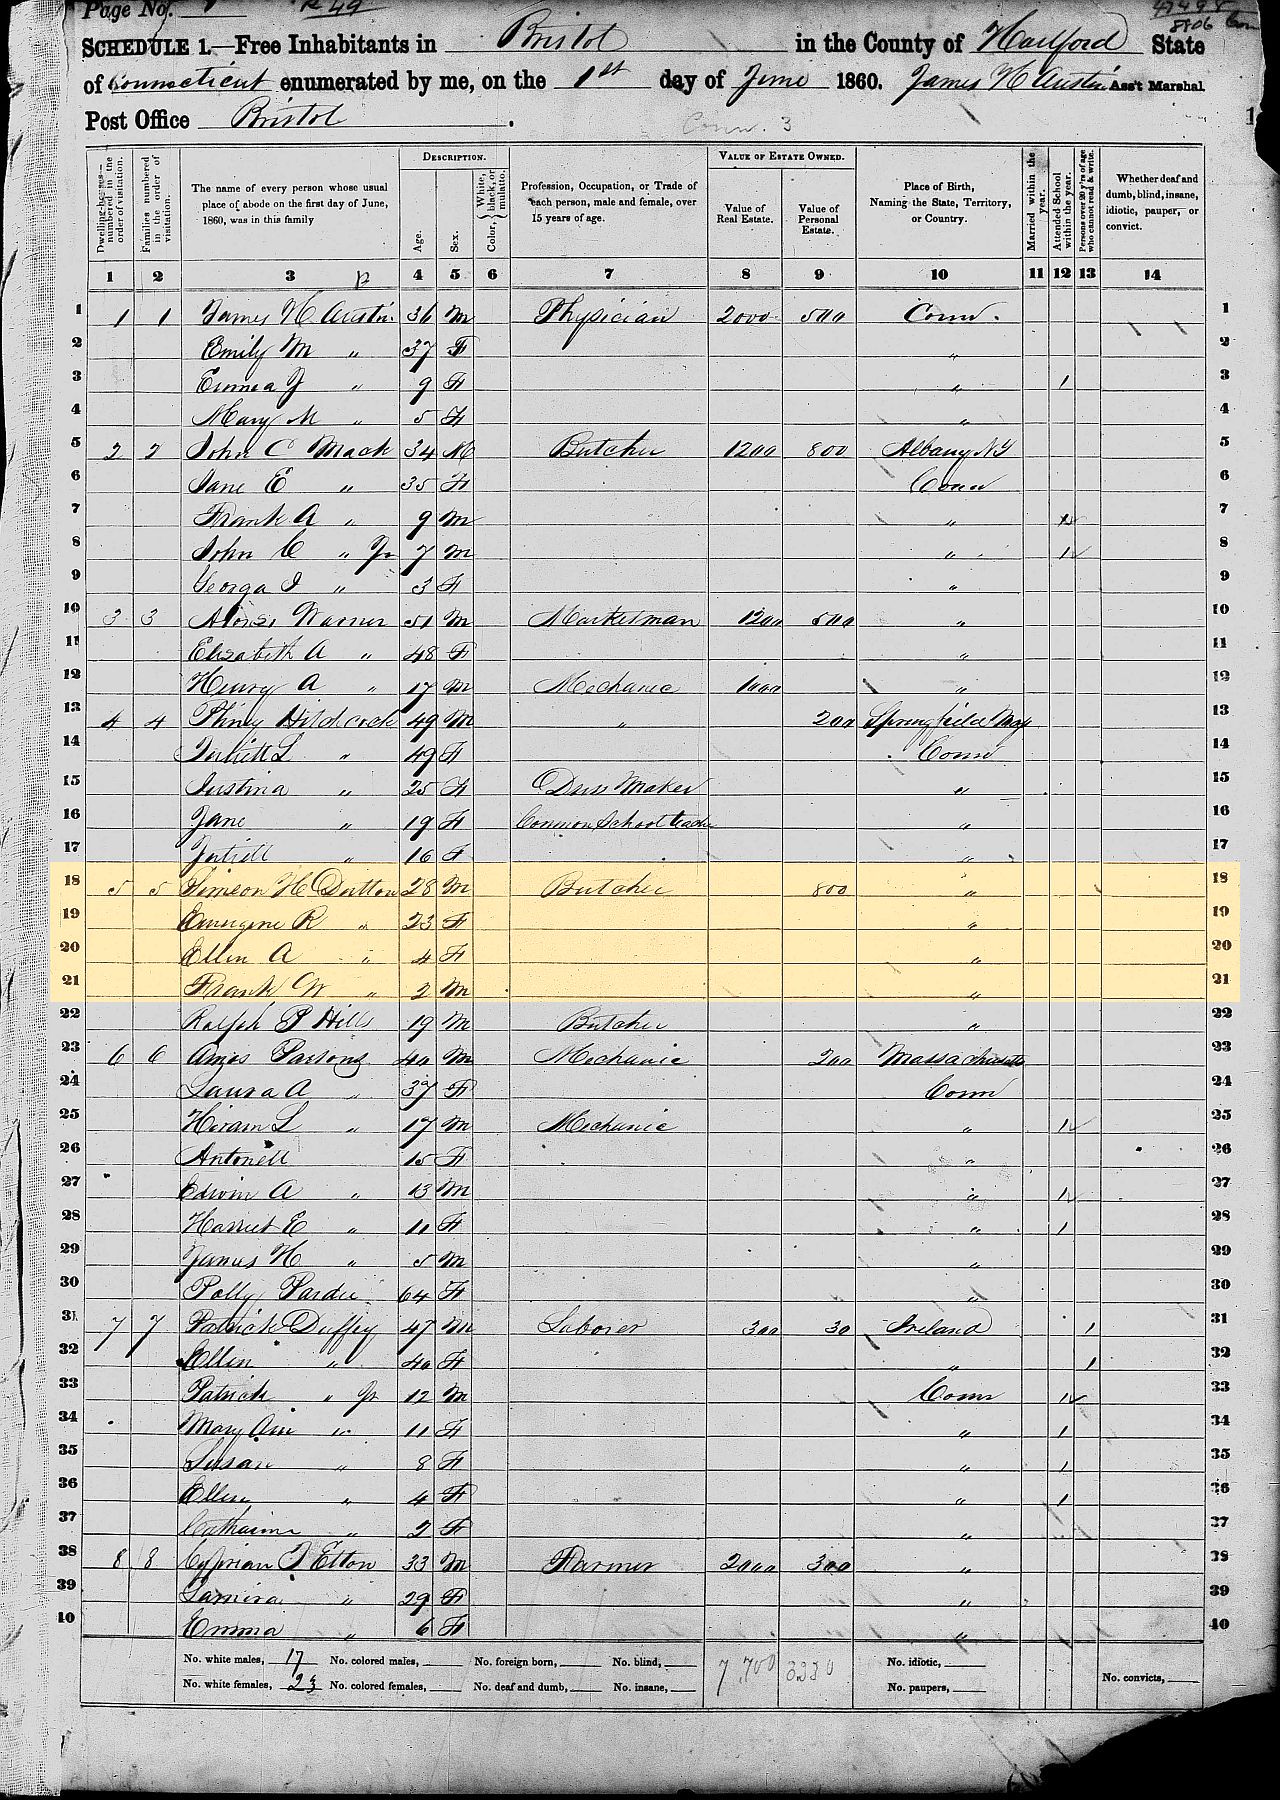 Page No. 1
SCHEDULE 1.—Free Inhabitants in Bristol in the County of Hartford State
of Connecticut enumerated by me, on the 1st day of June 1860. James H Austin Ass't Marshal.
Post Office Bristol.
Conn. 3
Dwelling-houses—numbered in the order of visitation.
Families numbered in the order of visitation.
The name of every person whose usual place of abode on the first day of June, 1860, was in this family
DESCRIPTION.
Age.
Sex.
Color, White, black, or mulatto.
Profession, Occupation, or Trade of each person, male and female, over 15 years of age.
VALUE OF ESTATE OWNED.
Value of Real Estate.
Value of Personal Estate.
Place of Birth, Naming the State, Territory, or Country.
Married within the year.
Attended School within the year.
Persons over 20 y'rs of age who cannot read & write.
Whether deaf and dumb, blind, insane, idiotic, pauper, or convict.
1 2 3 4 5 6 7 8 9 10 11 12 13 14
1 1 1 James H Austin 36 M Physician 2000 500 Conn. 1
2 Emily M " 37 F " 2
3 Emma J " 9 F " 1 3
4 Mary M " 5 F " 4
5 2 2 John C Mack 34 M Butcher 1200 800 Albany NY 5
6 Jane E " 35 F Conn 6
7 Frank A " 9 M " 1 7
8 John C " Jr 7 M " 1 8
9 Georga I " 3 F " 9
10 3 3 Alonzo Warner 51 M Marketman 1200 500 " 10
11 Elizabeth A " 48 F " 11
12 Henry A " 17 M Mechanic 1000 " 12
13 4 4 Pliny Hitchcock 49 M " 200 Springfield Mass 13
14 L " 49 F Conn 14
15 Justina " 25 F Dress Maker " 15
16 Jane " 19 F Common School teacher " 16
17 " 16 F " 17
18 5 5 Simeon H Dutton 28 M Butcher 800 " 18
19 Emergene R " 23 F " 19
20 Ellen A " 4 F " 20
21 Frank W " 2 M " 21
22 Ralph P Hills 19 M Butcher " 22
23 6 6 Amos Parsons 40 M Mechanic 200 Massachusetts 23
24 Laura A " 37 F Conn 24
25 Hiram L " 17 M Mechanic " 1 25
26 Antonett 15 F " 26
27 Edwin A " 13 M " 1 27
28 Harriet E " 11 F " 1 28
29 James H " 5 M " 29
30 Polly Pardee 64 F " 30
31 7 7 Patrick Duffey 47 M Laborer 300 30 Ireland 1 31
32 Ellen " 40 F " 1 32
33 Patrick " Jr 12 M Conn 1 33
34 Mary Ann " 11 F " 1 34
35 Susan " 8 F " 1 35
36 Ellen " 4 F " 1 36
37 Catharine " 2 F " 37
38 8 8 Cyprian Elton 33 M Farmer 2000 300 " 38
39 Samira " 29 F " 39
40 Emma " 6 F " 40
No. white males, 17 No. colored males, No. foreign born, No. blind, 7 700 3330 No. idiotic,
No. white females, 23 No. colored females, No. deaf and dumb, No. insane, No. paupers, No. convicts,